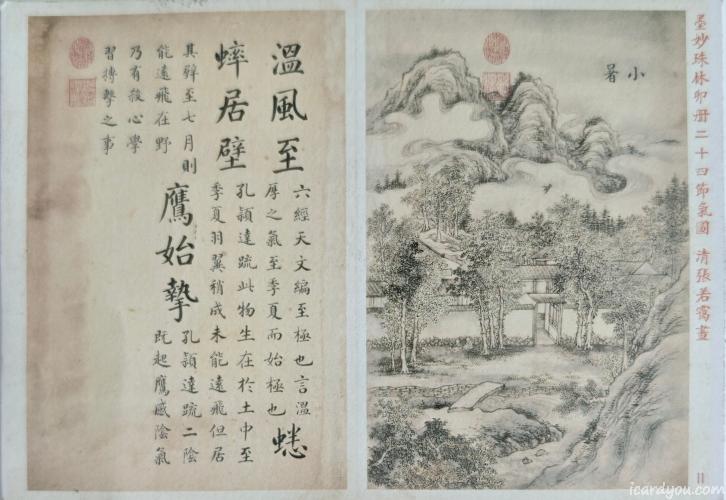 墨妙珠林卯册二十四節氣圖 清張若靄畫
小暑
溫風至
六經天文編至極也言溫
厚之氣至季夏而始極也
蟋
蟀居壁
孔穎達疏此物生在於土中至
季夏羽翼稍成未能遠飛但居
其壁至七月則
能遠飛在野
鷹始摯
孔穎達疏二陰
既起鷹感陰氣
乃有殺心學
習搏擊之事
11
icardyou.com